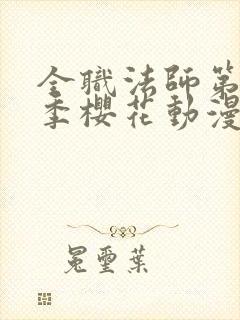 全職法師第
季櫻花動漫
冕璽葉